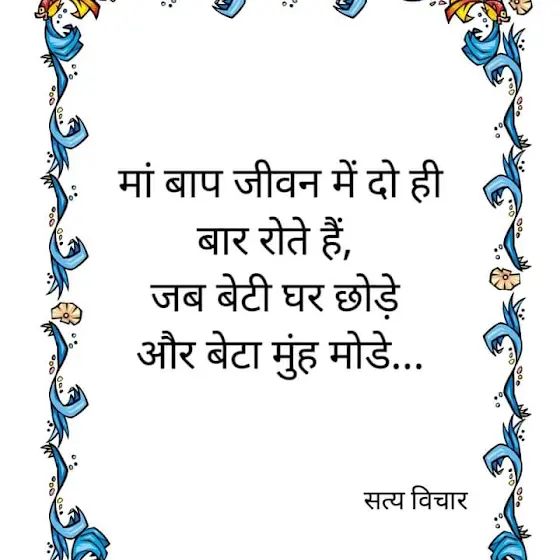 मां बाप जीवन में दो ही
बार रोते हैं,
जब बेटी घर छोड़े
और बेटा मुंह मोडे...
सत्य विचार